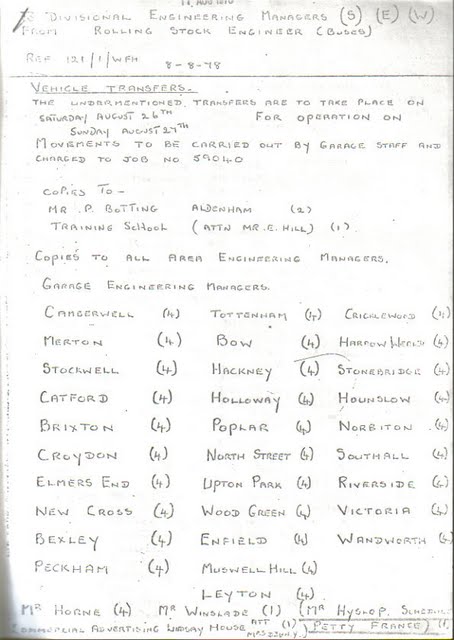 14 AUG 1978
To DIVISIONAL ENGINEERING MANAGERS (S) (E) (W)
FROM ROLLING STOCK ENGINEER (BUSES)
REF 121/1/WFH 8-8-78
VEHICLE TRANSFERS.
THE UNDERMENTIONED TRANSFERS ARE TO TAKE PLACE ON
SATURDAY AUGUST 26TH FOR OPERATION ON
SUNDAY AUGUST 27TH
MOVEMENTS TO BE CARRIED OUT BY GARAGE STAFF AND
CHARGED TO JOB NO 59040
COPIES TO -
MR .P. BOTTING ALDENHAM (2)
TRAINING SCHOOL (ATTN MR. E. HILL) (1)
COPIES TO ALL AREA ENGINEERING MANAGERS.
GARAGE ENGINEERING MANAGERS.
CAMBERWELL (4) TOTTENHAM (4) CRICKLEWOOD (4)
MERTON (4) BOW (4) HARROW WEALD (4)
STOCKWELL (4) HACKNEY (4) STONEBRIDGE (4)
CATFORD (4) HOLLOWAY (4) HOUNSLOW (4)
BRIXTON (4) POPLAR (4) NORBITON (4)
CROYDON (4) NORTH STREET (4) SOUTHALL (4)
ELMERS END (4) UPTON PARK (4) RIVERSIDE (4)
NEW CROSS (4) WOOD GREEN (4) VICTORIA (4)
BEXLEY (4) ENFIELD (4) WANDWORTH (4)
PECKHAM (4) MUSWELL HILL (4)
LEYTON (4)
MR HORNE (4) MR WINSLADE (1) (MR HYSLOP. SCHEDULE
COMMERCIAL ADVERTISING LINDSAY HOUSE ATT (1) PETTY FRANCE) (1